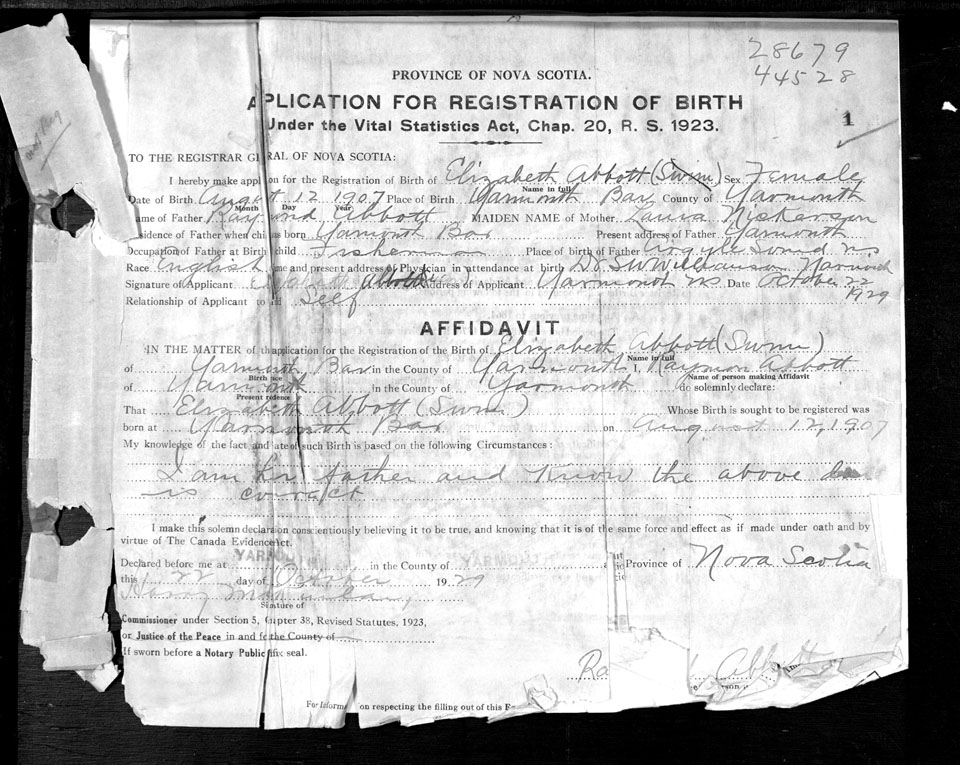 28679
44528
PROVINCE OF NOVA SCOTIA.
APLICATION FOR REGISTRATION OF BIRTH
Under the Vital Statistics Act, Chap. 20, R. S. 1923.
1
TO THE REGISTRAR GE RAL OF NOVA SCOTIA:
I hereby make appli on for the Registration of Birth of Elizabeth Abbott (Swim) Sex Female
Name in full
Date of Birth August 12 1907 Place of Birth Yarmouth Bar County of Yarmouth
Month Day Year
Name of Father Raymond Abbott MAIDEN NAME of Mother Laura Nickerson
sidence of Father when chi as born Yarmouth Bar Present address of Father Yarmouth
Occupation of Father at Birth child Fisherman Place of birth of Father Argyle Sound NS
Race English me and present address of Physician in attendance at birth Dr. Yarmouth
Signature of Applicant Elizabeth Abbott Address of Applicant Yarmouth NS Date October 22
1929
Relationship of Applicant to Self
AFFIDAVIT
IN THE MATTER of th application for the Registration of the Birth of Elizabeth Abbott (Swim)
Name in full
of Yarmouth Bar in the County of Yarmouth I, Raymon Abbott
Birth Name of person making Affidavit
of Yarmouth in the County of Yarmouth do solemnly declare:
Present
That Elizabeth Abbott (Swim) Whose Birth is sought to be registered was
born at Yarmouth Bar on August 12, 1907
My knowledge of the fact and ate of such Birth is based on the following Circumstances:
I am her father and know the above
is correct
I make this solemn declaration conscientiously believing it to be true, and knowing that it is of the same force and effect as if made under oath and by
virtue of The Canada Evidence Act.
Declared before me at YARMOUTH in the County of YARMOUTH Province of Nova Scotia
this 22 day of October 1929
Signature of
Commissioner under Section 5, Chapter 38, Revised Statutes, 1923,
or Justice of the Peace in and fo the County of
If sworn before a Notary Public fix seal.
Ra Abbott
For Inform on respecting the filling out of this F